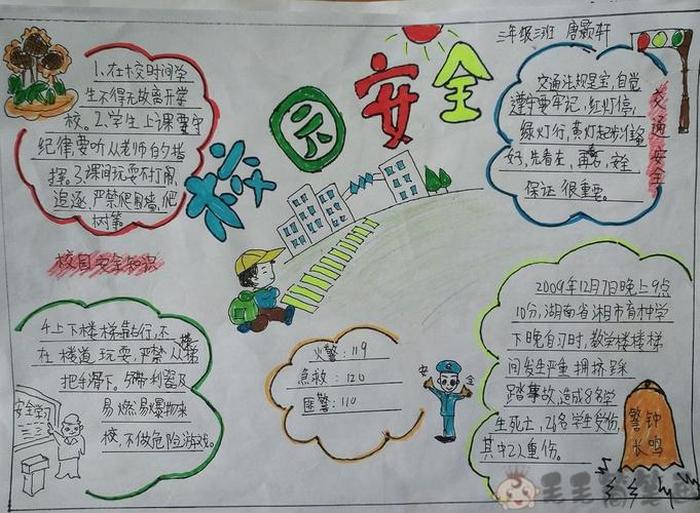 校园安全
三年级三班 唐颢轩
1.在校时间学
生不得无故离开学
校。2.学生上课要守
纪律,要听从老师的指
挥。3.课间玩耍不打闹
追逐,严禁爬围墙,爬
树等。
校园安全知识
交通法规是宝,自觉
遵守要牢记,红灯停,
绿灯行,黄灯起步准备
好,先看左,再看右,安全
保证很重要。
交通安全
4.上下楼梯靠右行,不
在楼道玩耍,严禁从楼梯
把手滑下。5.带利器及
易燃易爆物来
校,不做危险游戏。
安全学习
火警:119
急救:120
匪警:110
安全
2009年12月7日晚上9点
10分,湖南省湘乡市育才中学
下晚自习时,教学楼楼梯
间发生严重拥挤踩
踏事故,造成8名学
生死亡,26名学生受伤,
其中2人重伤。
警钟
长鸣
毛毛简笔画